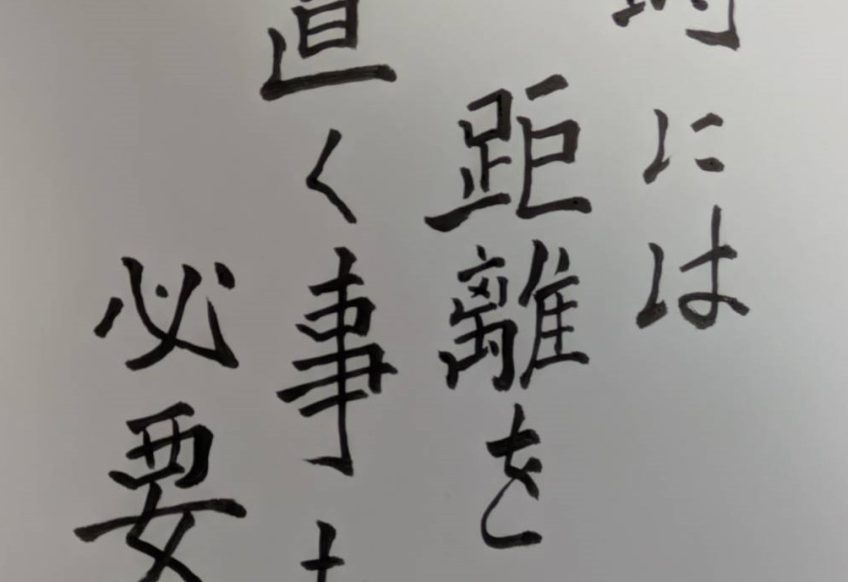 には
距離を
置く事
必要